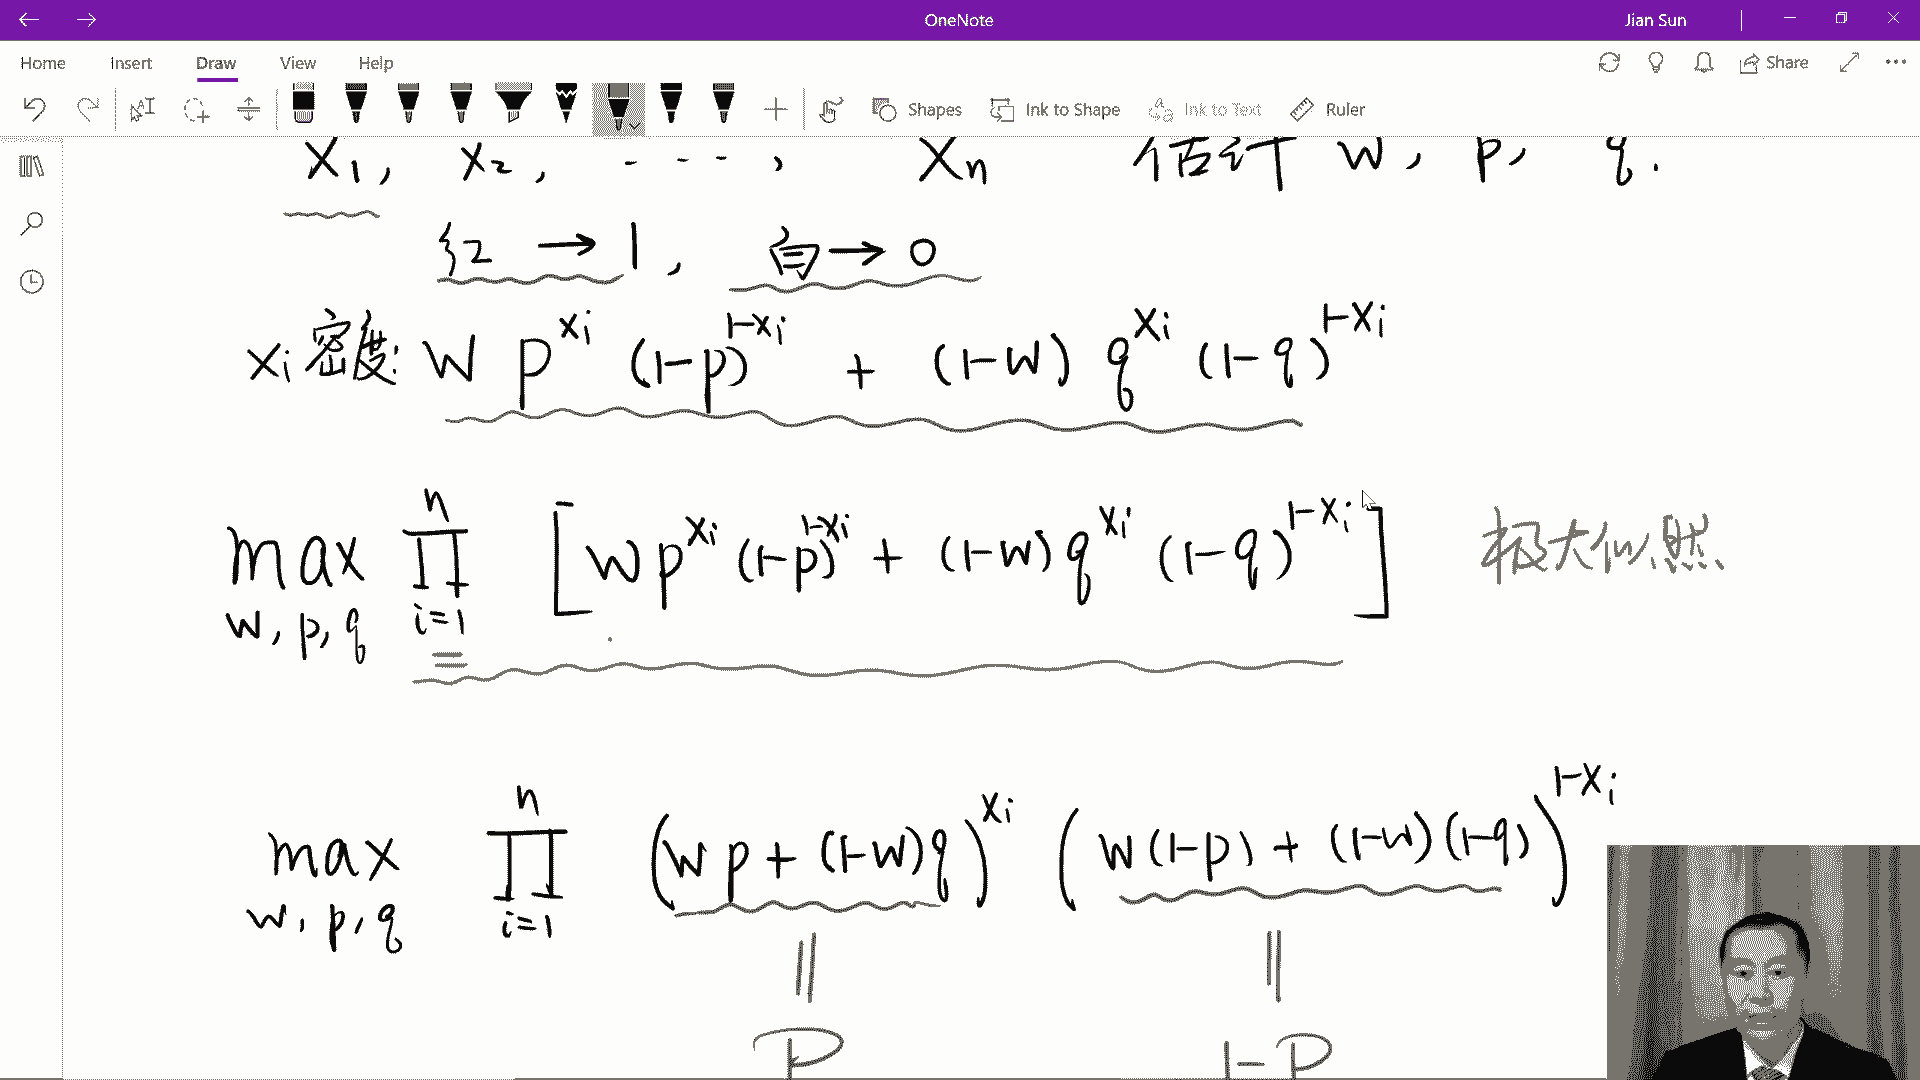 OneNote
Jian Sun
Home Insert Draw View Help
Share
Shapes Ink to Shape Ink to Text Ruler
x₁, x₂, ---, xₙ 估计 w, p, q.
红 → 1, 白 → 0
xᵢ 密度: w p^{xᵢ} (1-p)^{1-xᵢ} + (1-w) q^{xᵢ} (1-q)^{1-xᵢ}
max_{w,p,q} ∏_{i=1}^{n} [w p^{xᵢ} (1-p)^{1-xᵢ} + (1-w) q^{xᵢ} (1-q)^{1-xᵢ}] 极大似然
max_{w,p,q} ∏_{i=1}^{n} (wp + (1-w)q)^{xᵢ} (w(1-p) + (1-w)(1-q))^{1-xᵢ}
|| ||
P 1-P